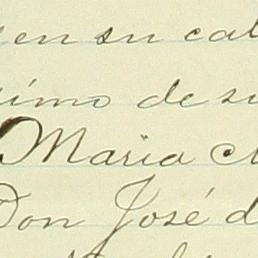 en su cal
imo de su
Maria
Don José d